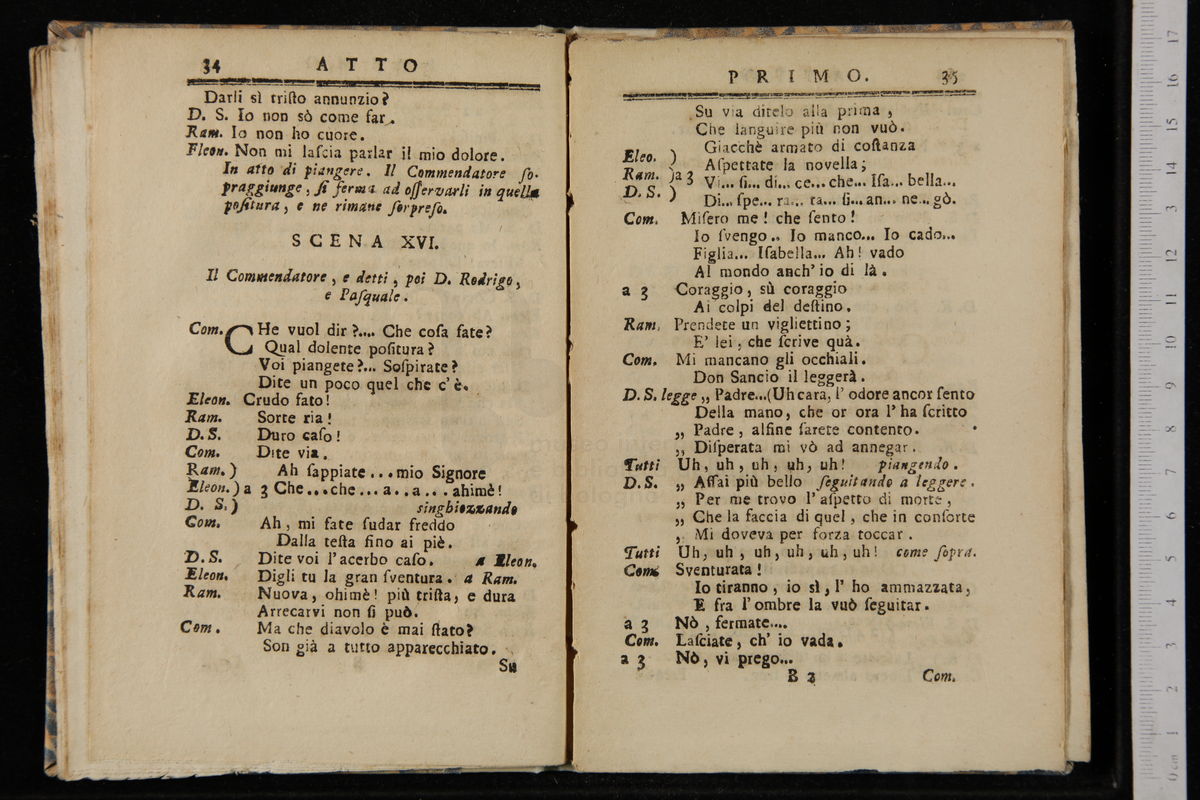 34 ATTO
Darli sì triſto annunzio?
D. S. Io non sò come far.
Ram. Io non ho cuore.
Eleon. Non mi laſcia parlar il mio dolore.
In atto di piangere. Il Commendatore ſo-
praggiunge, ſi ferma ad oſſervarli in quella
poſitura, e ne rimane ſorpreſo.
SCENA XVI.
Il Commendatore, e detti, poi D. Rodrigo,
e Paſquale.
Com. CHe vuol dir?.... Che coſa fate?
Qual dolente poſitura?
Voi piangete?... Soſpirate?
Dite un poco quel che c'è.
Eleon. Crudo fato!
Ram. Sorte ria!
D.S. Duro caſo!
Com. Dite via.
Ram. ) Ah ſappiate...mio Signore
Eleon. ) a 3 Che...che...a..a... ahimè!
D. S. ) singhiozzando
Com. Ah, mi fate ſudar freddo
Dalla teſta fino ai piè.
D.S. Dite voi l'acerbo caſo. a Eleon.
Eleon. Digli tu la gran ſventura. a Ram.
Ram. Nuova, ohimè! più triſta, e dura
Arrecarvi non ſi può.
Com. Ma che diavolo è mai ſtato?
Son già a tutto apparecchiato.
Su
PRIMO. 35
Su via ditelo alla prima,
Che languire più non vuò.
Giacchè armato di coſtanza
Eleo. ) Aſpettate la novella;
Ram. )a 3 Vi... ſi... di... ce... che... Iſa... bella...
D. S. ) Di... ſpe... ra... ta... ſi... an... ne... gò.
Com. Miſero me! che ſento!
Io ſvengo.. Io manco... Io cado...
Figlia... Iſabella... Ah! vado
Al mondo anch'io di là.
a 3 Coraggio, sù coraggio
Ai colpi del deſtino.
Ram. Prendete un vigliettino;
E' lei, che ſcrive quà.
Com. Mi mancano gli occhiali.
Don Sancio il leggerà.
D. S. legge „ Padre...(Uh cara, l'odore ancor ſento
Della mano, che or ora l'ha ſcritto
„ Padre, alfine ſarete contento.
„ Diſperata mi vò ad annegar.
Tutti Uh, uh, uh, uh, uh! piangendo.
D.S. „ Aſſai più bello ſeguitando a leggere.
„ Per me trovo l'aſpetto di morte,
„ Che la faccia di quel, che in conſorte
„ Mi doveva per forza toccar.
Tutti Uh, uh, uh, uh, uh, uh! come ſopra.
Com. Sventurata!
Io tiranno, io sì, l'ho ammazzata,
E fra l'ombre la vuò ſeguitar.
a 3 Nò, fermate....
Com. Laſciate, ch'io vada.
a 3 Nò, vi prego...
B 3 Com.
0 cm 1 2 3 4 5 6 7 8 9 10 11 12 13 14 15 16 17